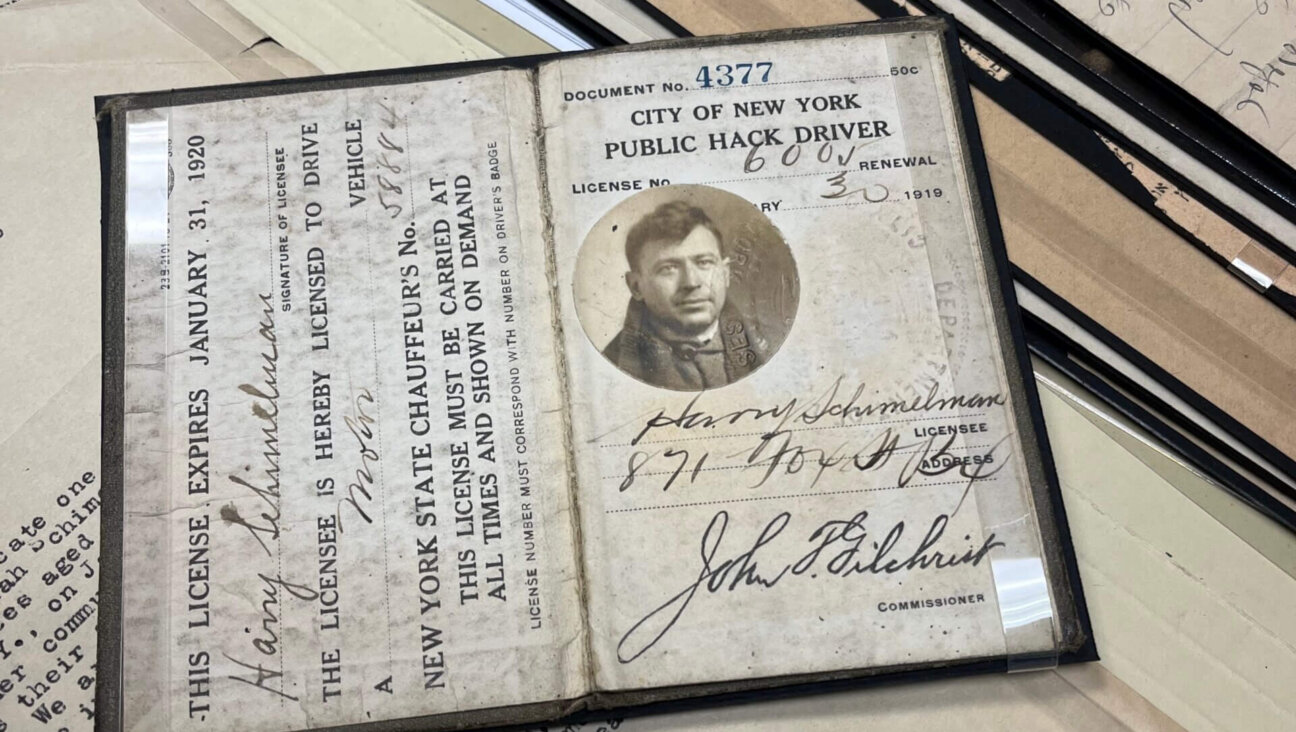 DOCUMENT No. 4377 50C
CITY OF NEW YORK
PUBLIC HACK DRIVER
LICENSE No. RENEWAL
ARY 30 1919
Harry Schimelman
LICENSEE
871
ADDRESS
John F. Gilchrist
COMMISSIONER
THIS LICENSE EXPIRES JANUARY 31, 1920
Harry Schimelman
SIGNATURE OF LICENSEE
THE LICENSEE IS HEREBY LICENSED TO DRIVE
A Motor VEHICLE
NEW YORK STATE CHAUFFEUR'S No. 58884
THIS LICENSE MUST BE CARRIED AT
ALL TIMES AND SHOWN ON DEMAND
LICENSE NUMBER MUST CORRESPOND WITH NUMBER ON DRIVER'S BADGE
cate one
ah Schim
es aged
on J
er commu
their
We a